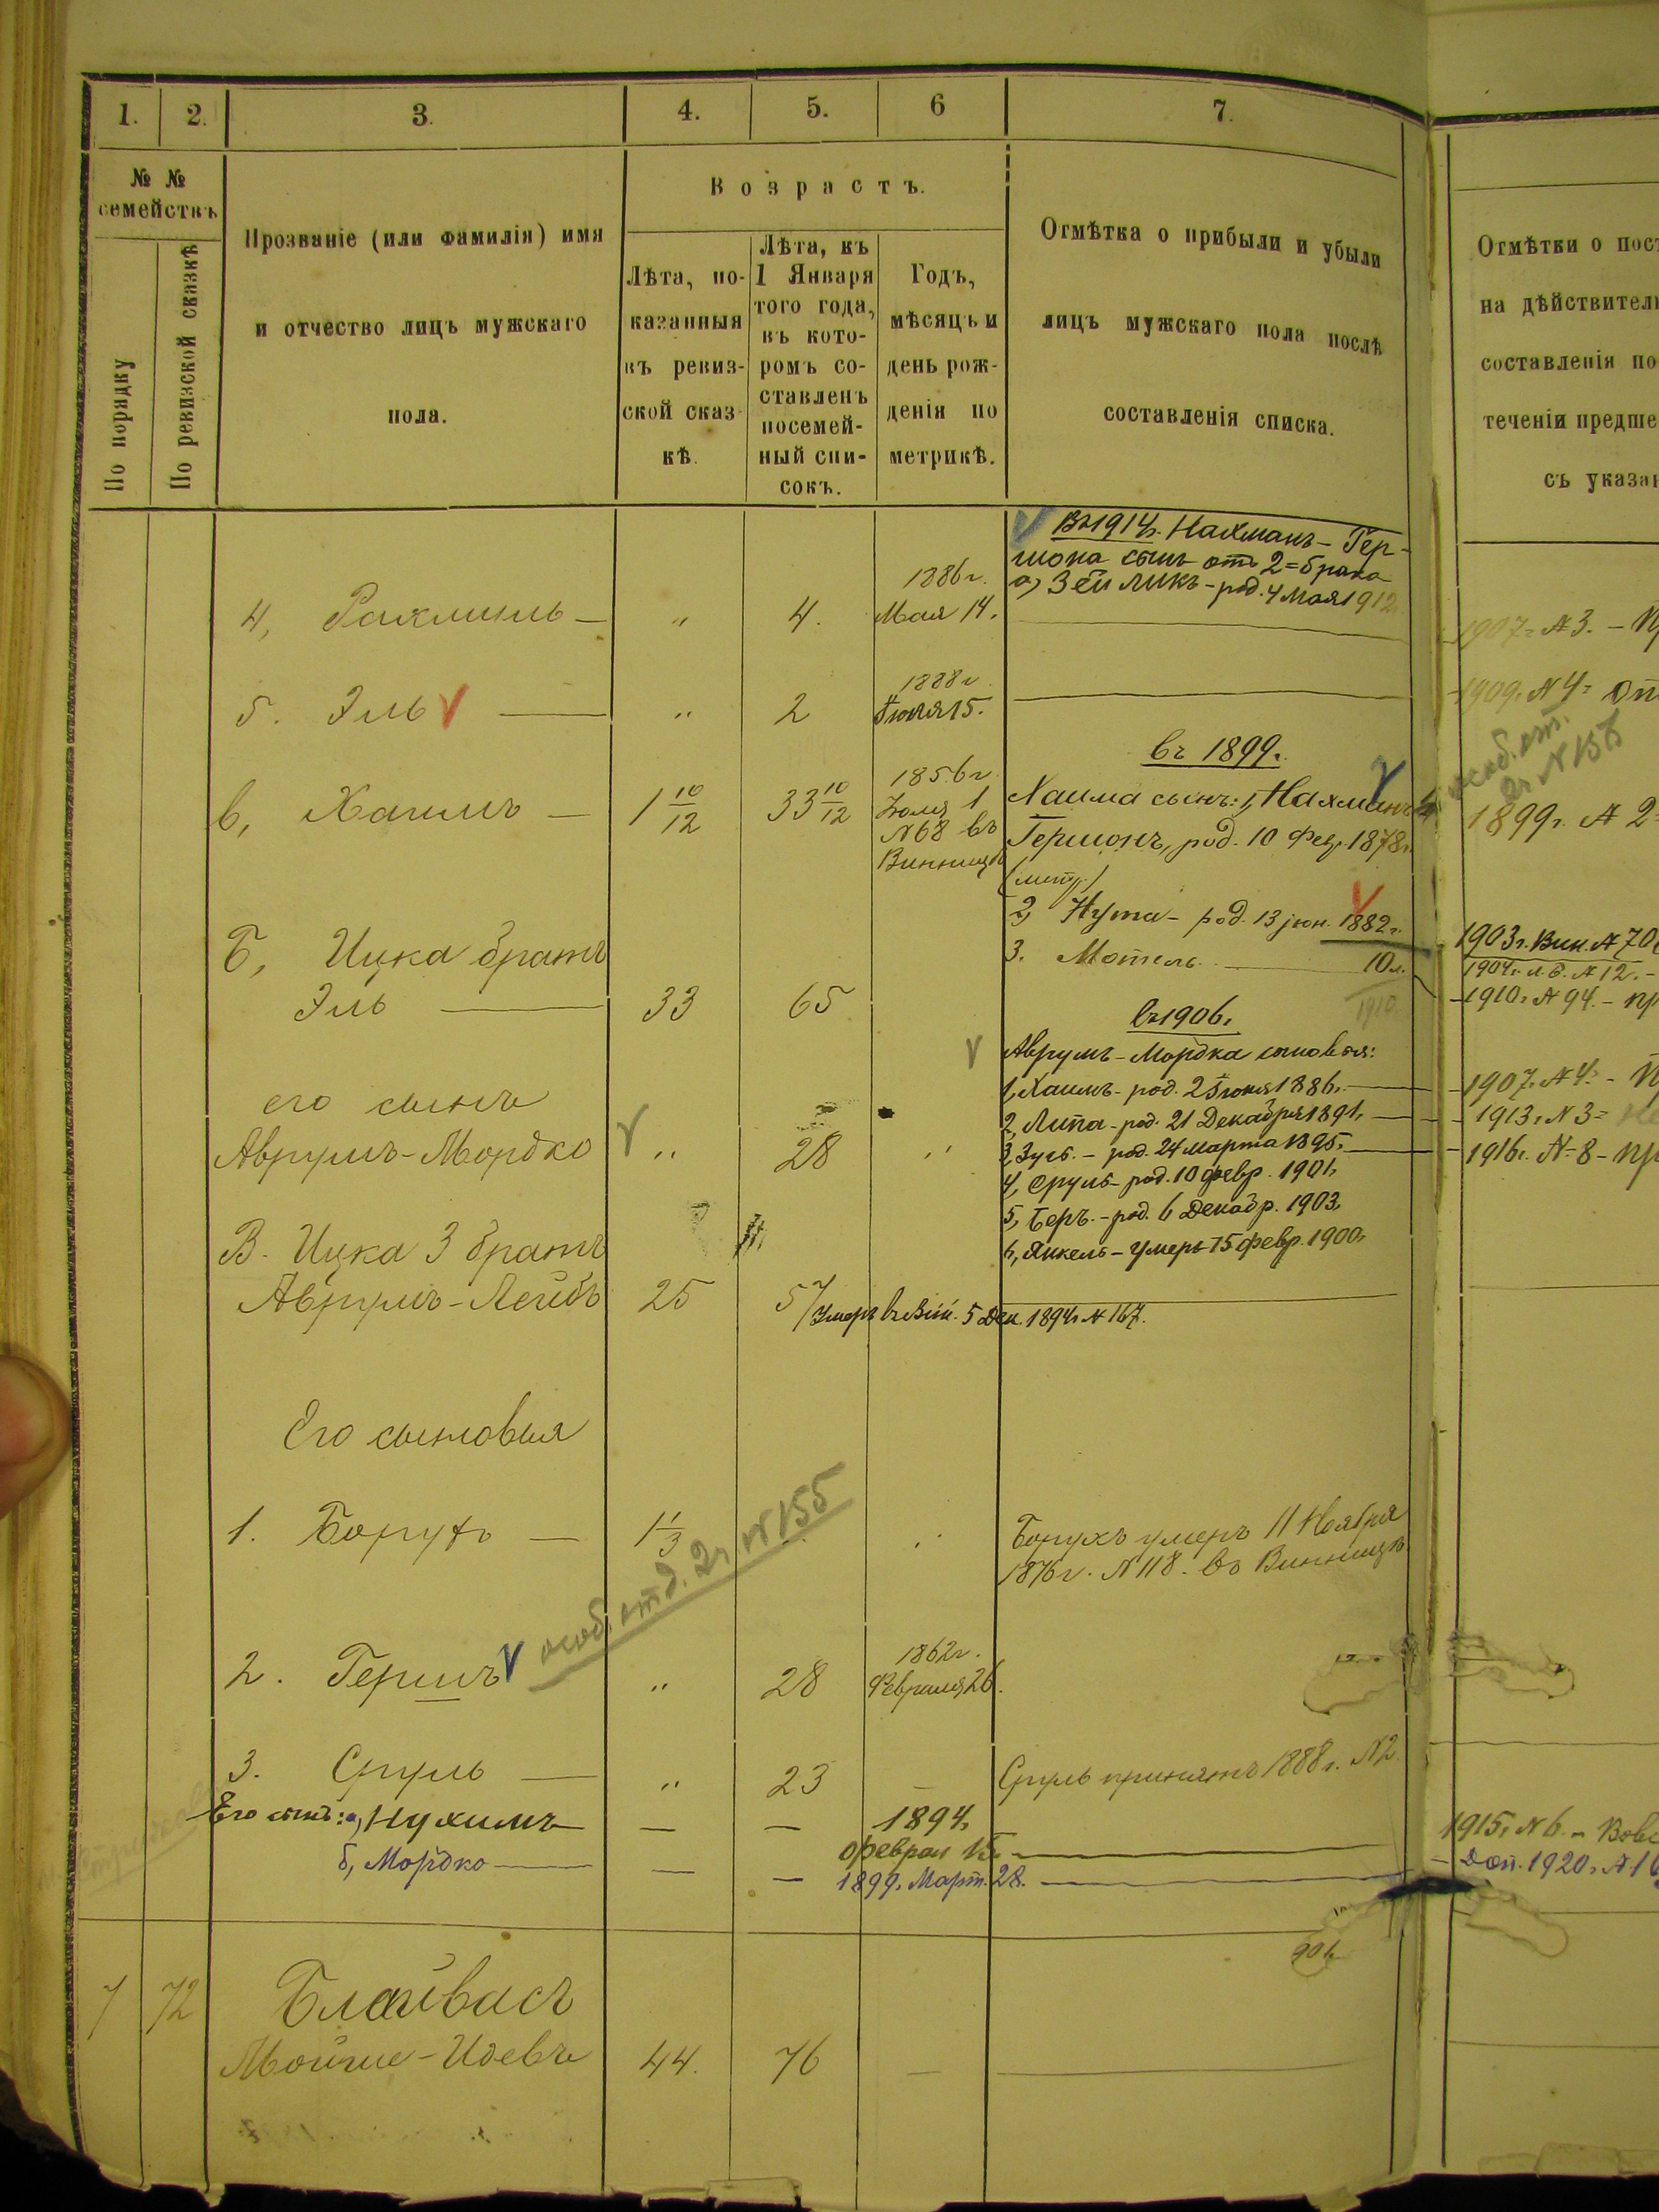 1. 2. 3. 4. 5. 6 7.
№ №
семействъ
По порядку
По ревизской сказкѣ
Прозваніе (или фамилія) имя
и отчество лицъ мужскаго
пола.
Возрастъ.
Лѣта, по-
казанныя
въ ревиз-
ской сказ
кѣ.
Лѣта, къ
1 Января
того года,
въ кото-
ромъ со-
ставленъ
посемей-
ный спи-
сокъ.
Годъ,
мѣсяцъ и
день рож-
денія по
метрикѣ.
Отмѣтка о прибыли и убыли
лицъ мужскаго пола послѣ
составленія списка.
Отмѣтки о пост
на дѣйствител
составленія по
теченіи предше
съ указан
Въ 1914г. Нахманъ-Гер-
шона сынъ отъ 2=брака
а, Зейликъ - род. 4 мая 1912
4, Рахмиль — " 4. 1886г.
Мая 14.
1907г. № 3. - Пр
5. Эль — " 2 1888г
Іюля 15.
1909г. № 4=
особ. отд.
2ч № 155
въ 1899г.
в, Хаимъ — 1 10/12 33 10/12 1856г
Іюля 1
№ 68 въ
Винницѣ
Хаима сынъ: 1, Нахманъ
Гершонъ, род. 10 Фев. 1878г.
1899г. № 2=
2, Нута - род. 13 іюн. 1882г.
3. Мотель — 10 л.
1910
1903г. Вин. № 70
1904г. № 12. -
1910г. № 94. - пр
Б, Ицка братъ
Эль — 33 65
въ 1906г.
Аврумъ-Мордка сыновья:
1, Хаимъ - род. 2 Іюня 1886г.
2, Липа - род. 21 Декабря 1891г.
3, Зусь. - род. 24 марта 1895г.
4, Сруль - род. 10 февр. 1901г.
5, Беръ. - род. 6 Декабр. 1903г.
6, Янкель - умеръ 15 февр. 1900г.
1907г. № 4. - П
1913г. № 3=
1916г. № 8 - пр
его сынъ
Аврумъ-Мордко " 28 "
В. Ицка 3 братъ
Аврумъ-Лейбъ 25 57
Умеръ въ Вин. 5 Дек. 1894г № 167.
Его сыновья
1. Борухъ — 1 1/3
Борухъ умеръ 11 Ноября
1876г. № 118. въ Винницѣ
особ. отд. 2ч № 155
2. Гершъ " 28 1862г.
Февраля 26.
3. Сруль — " 23 —
Сруль принятъ 1888г. № 2.
Его сынъ: а, Нухимъ — — 1894г.
феврал 15. —
1915г. № 6. -
б, Мордко — — — 1899г. Март. 28. —
Доп. 1920г. № 1
7 72 Блайвасъ
Мойше-Идевъ 44. 76 —